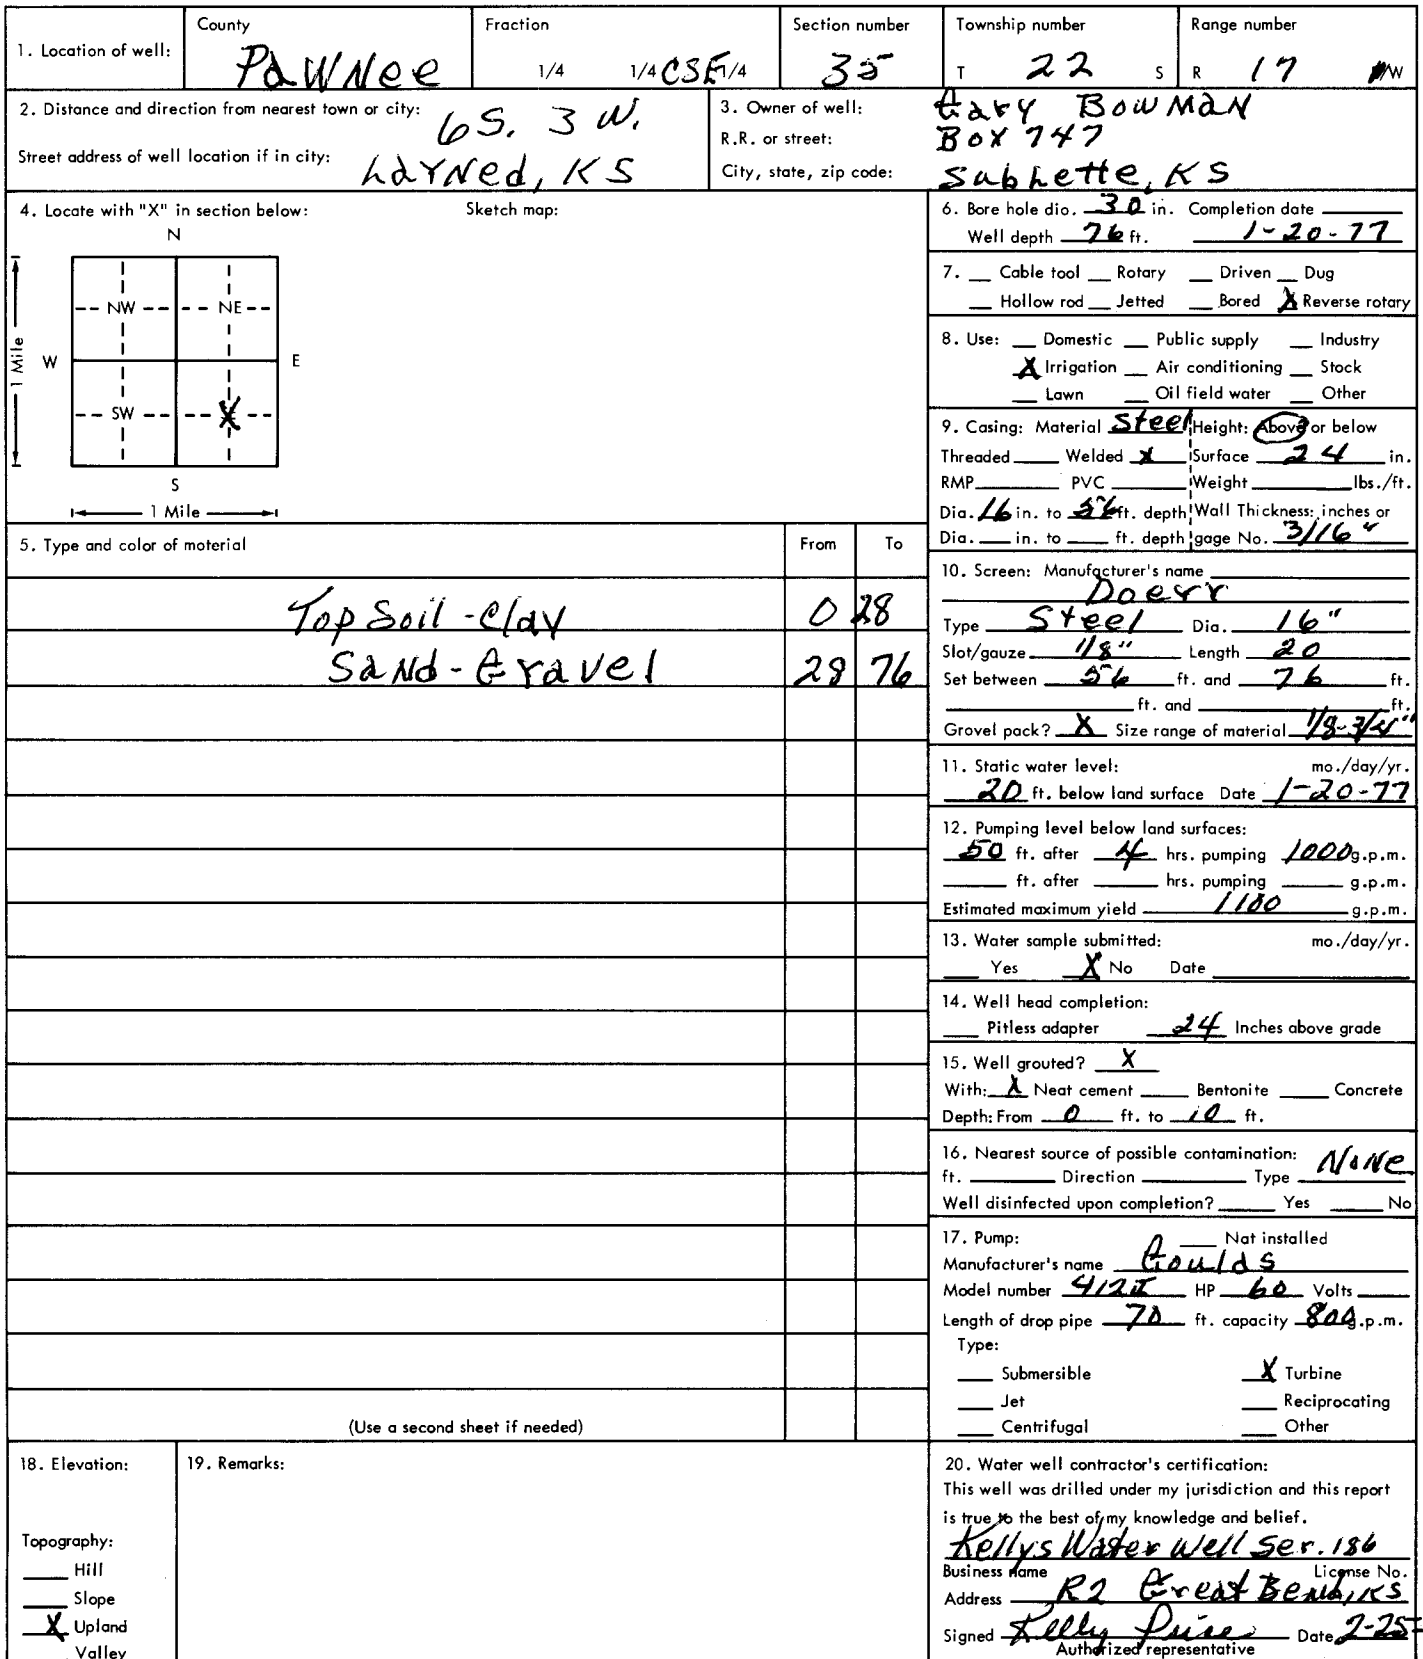 1. Location of well: County PaWNee Fraction 1/4 1/4 CSE 1/4 Section number 35 Township number T 22 S Range number R 17 W
2. Distance and direction from nearest town or city: 6S. 3 W.
Street address of well location if in city: LarNed, KS
3. Owner of well: Gary BowMaN
R.R. or street: Box 747
City, state, zip code: SubLette, KS
4. Locate with "X" in section below: Sketch map:
N
NW NE
W E
1 Mile
SW X
S
1 Mile
5. Type and color of material From To
Top Soil - Clay 0 28
SaNd - Gravel 28 76
(Use a second sheet if needed)
6. Bore hole dia. 30 in. Completion date
Well depth 76 ft. 1-20-77
7. __ Cable tool __ Rotary __ Driven __ Dug
__ Hollow rod __ Jetted __ Bored X Reverse rotary
8. Use: __ Domestic __ Public supply __ Industry
X Irrigation __ Air conditioning __ Stock
__ Lawn __ Oil field water __ Other
9. Casing: Material Steel Height: Above or below
Threaded __ Welded X Surface 24 in.
RMP __ PVC __ Weight __ lbs./ft.
Dia. 16 in. to 56 ft. depth Wall Thickness: inches or
Dia. __ in. to __ ft. depth gage No. 3/16"
10. Screen: Manufacturer's name
Doerr
Type Steel Dia. 16"
Slot/gauze 1/8" Length 20
Set between 56 ft. and 76 ft.
__ ft. and __ ft.
Gravel pack? X Size range of material 1/8-3/4"
11. Static water level: mo./day/yr.
20 ft. below land surface Date 1-20-77
12. Pumping level below land surfaces:
50 ft. after 4 hrs. pumping 1000 g.p.m.
__ ft. after __ hrs. pumping __ g.p.m.
Estimated maximum yield 1100 g.p.m.
13. Water sample submitted: mo./day/yr.
__ Yes X No Date __
14. Well head completion:
__ Pitless adapter 24 Inches above grade
15. Well grouted? X
With: X Neat cement __ Bentonite __ Concrete
Depth: From 0 ft. to 10 ft.
16. Nearest source of possible contamination:
ft. __ Direction __ Type NoNe
Well disinfected upon completion? __ Yes __ No
17. Pump: __ Not installed
Manufacturer's name Goulds
Model number HP 60 Volts __
Length of drop pipe 70 ft. capacity 800 g.p.m.
Type:
__ Submersible X Turbine
__ Jet __ Reciprocating
__ Centrifugal __ Other
18. Elevation:
Topography:
__ Hill
__ Slope
X Upland
Valley
19. Remarks:
20. Water well contractor's certification:
This well was drilled under my jurisdiction and this report
is true to the best of my knowledge and belief.
Kellys Water Well Ser. 186
Business name License No.
Address R2 Great Bend, KS
Signed Kelly Price Date 2-25-
Authorized representative